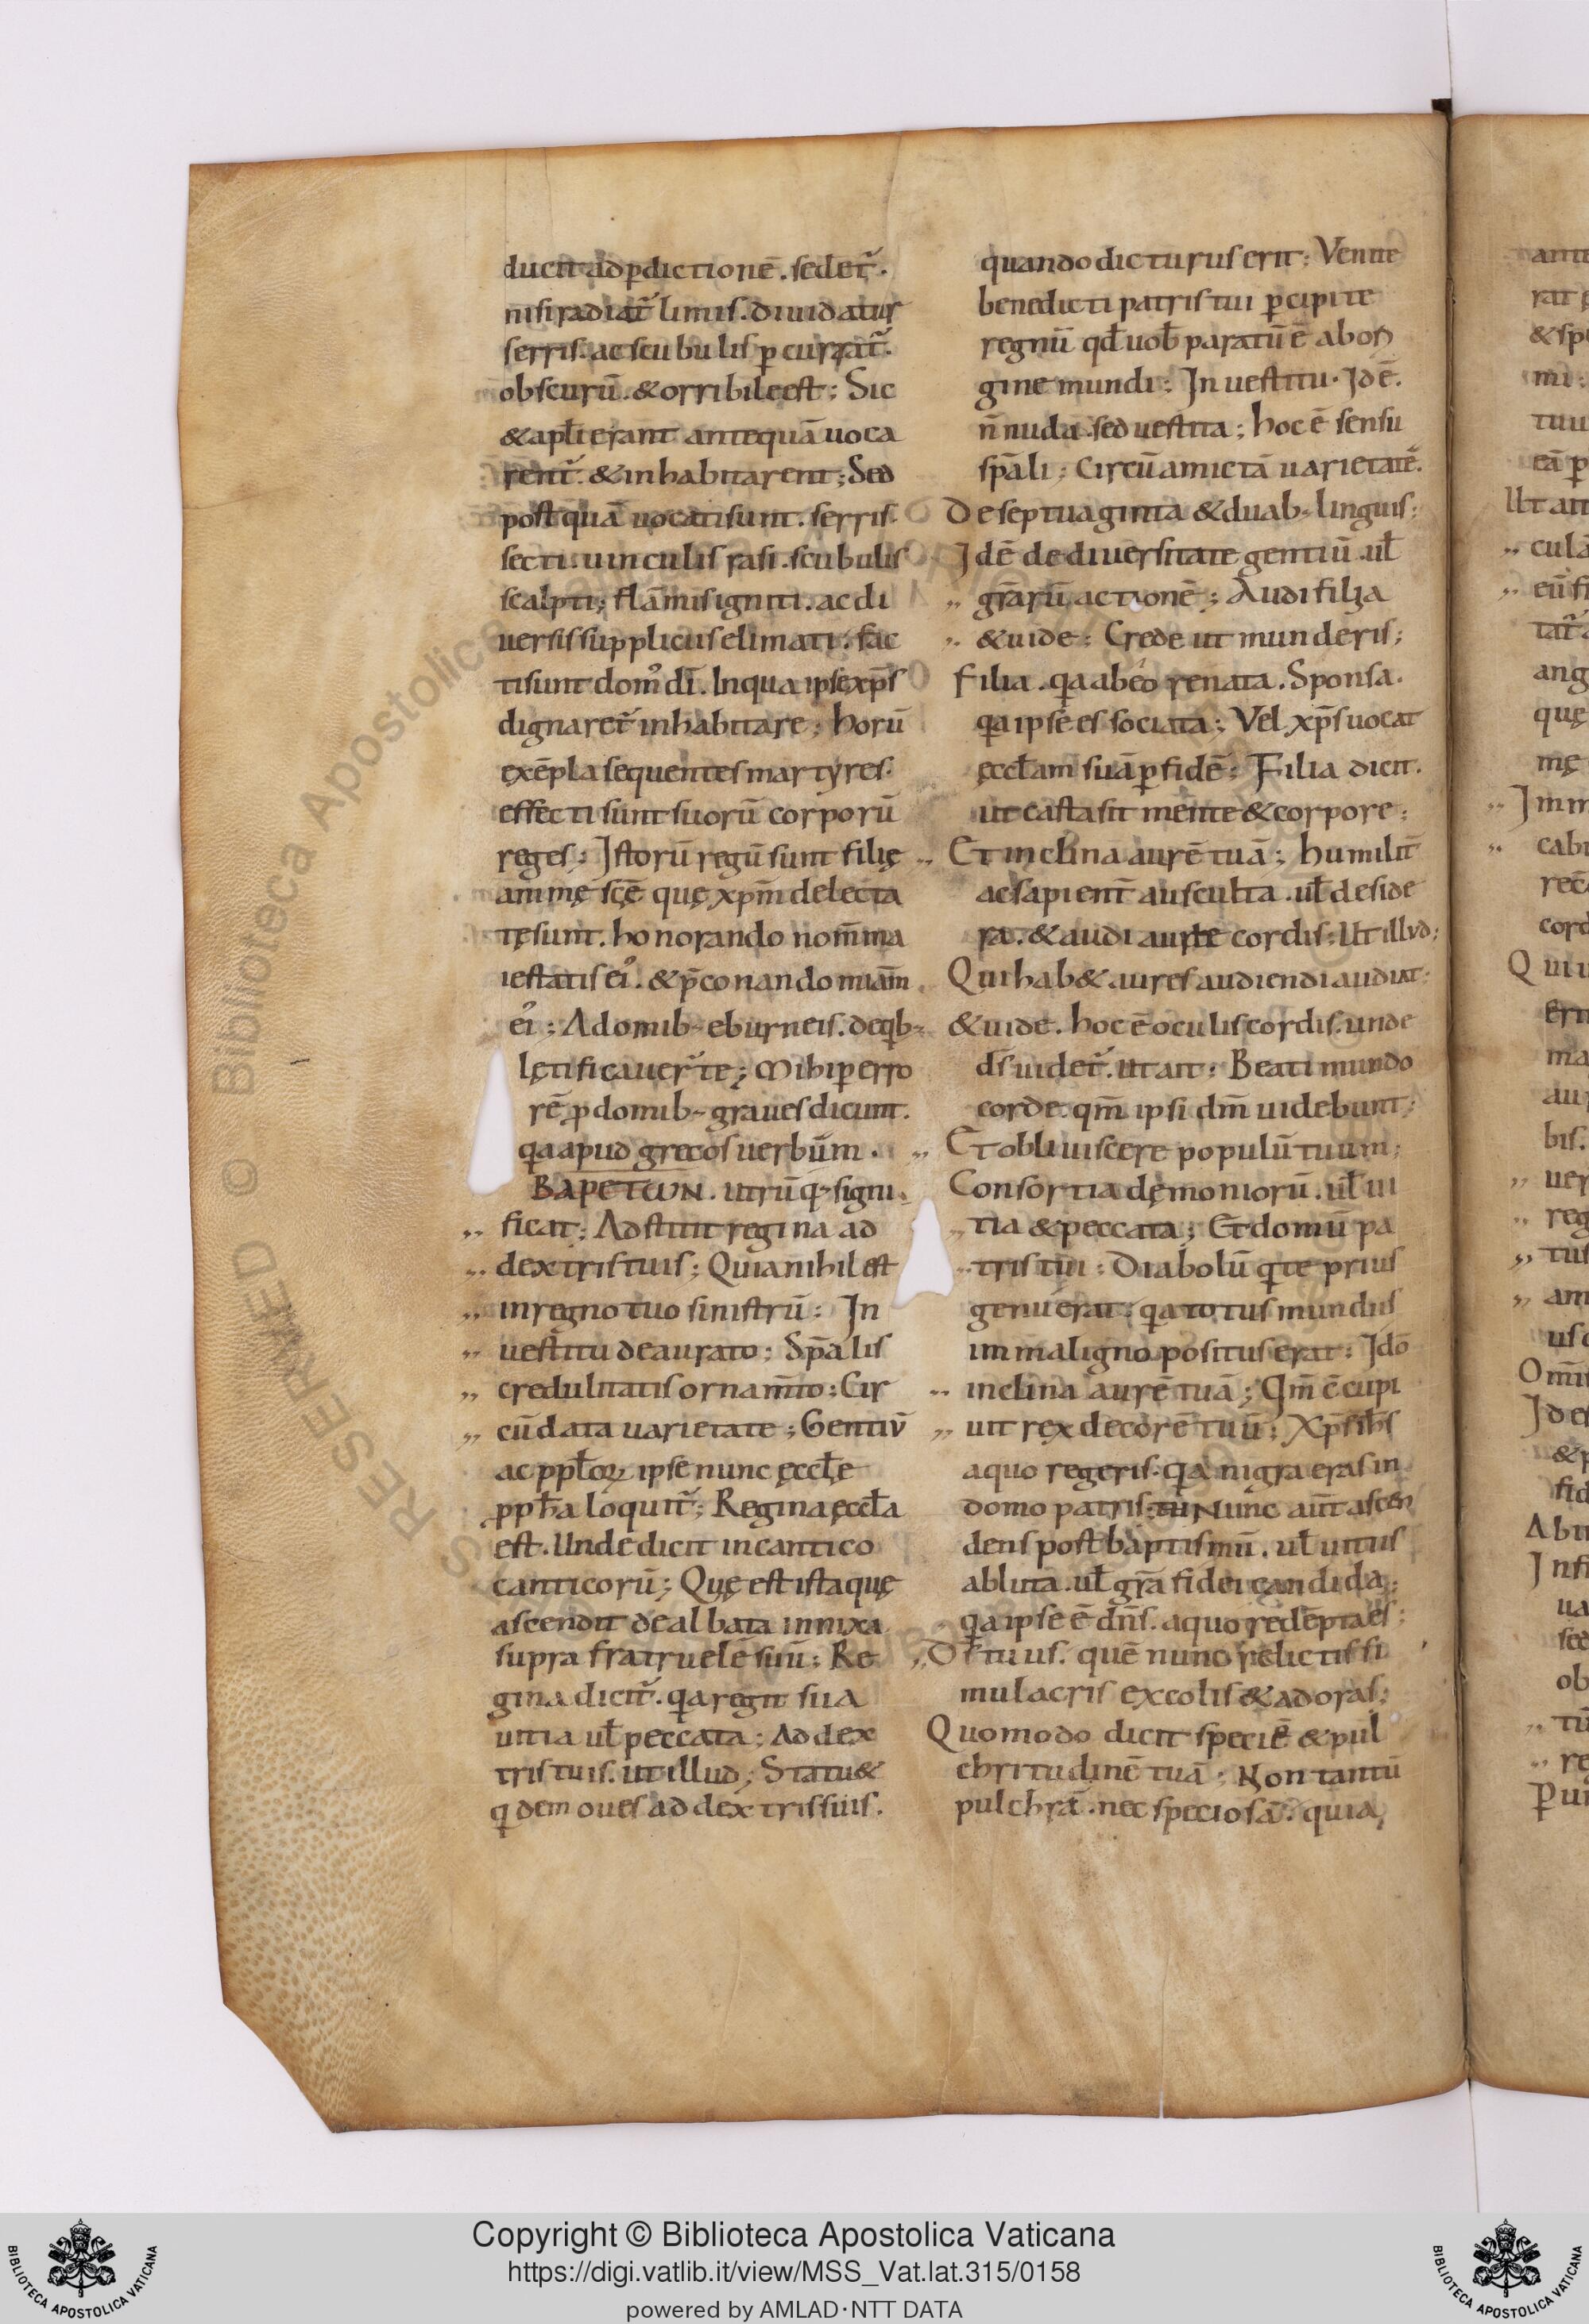 ducit ad ꝑdictionē. sedet᷑.
nisi radiat᷑ limis. diuidatur
serris. ac scubulis ꝑcurrat᷑.
obscurū. & orribile est; Sic
& apłi erant antequā uoca
rent᷑. & inhabitarent; Sed
postquā uocati sunt. serris
secti. uinculis rasi. scubulis
scalpti; flāmis igniti. ac di
uersis suppliciis elimati. fac
ti sunt domꝰ dī. In qua ipse xp̄s
dignaret᷑ inhabitare; horū
exēpla sequentes martyres.
effecti sunt suorū corporū
reges; Istorū regū sunt filię
animę scę̄ quę xpm̄ delecta
tę sunt. honorando nom̄ ma
iestatis eiꝰ. & p̄conando miām̄
eiꝰ; A domib; eburneis. de qꝰb;
lętificauer᷑ te; Mihi ꝑ erro
rē ꝓ domib; graues dicunt.
qa apud grecos uerbūm.
ΒΑΡΕΤωΝ. utrūq; signi
ficat; Adstitit regina ad
dextris tuis; Quia nihil est
in regno tuo sinistrū; In
uestitu deaurato; Sp̄alis
credulitatis ornam̄to; Cir
cūdata uarietate; Gentiū
ac pplo̵ꝝ ipse nunc ęccłę
ppħa loquit᷑; Regina ęccła
est. Unde dicit in cantico
canticorū; Quę est ista quę
ascendit dealbata innixa
supra fratruelē suū; Re
gina dicit᷑. qa regit sua
uitia uł peccata; Ad dex
tris tuis. ut illud; Statu&
qdem oues ad dextris suis.
quando dicturus erit; Venite
benedicti patris tui ꝑcipite
regnū qđ uoƀ paratū ē ab ori
gine mundi; In uestitu. Id ē.
n̄ nuda sed uestita; hoc ē sensu
sp̄ali; Circūamictā uarietatē.
De septuaginta & duab; linguis;
Id ē de diuersitate gentiū. uł
gr̄arū actionē; Audi filia
& uide; Crede ut munderis;
Filia. qa ab eo renata. Sponsa.
qa ipse es sociata; Vel xp̄s uocat
ęccłam suā ꝑ fidē; Filia dicit.
ut casta sit mente & corpore;
Et inclina aurē tuā; humilit᷑
ac sapient᷑ ausculta. uł deside
ra. & audi aure cordis; Ut illud;
Qui hab& aures audiendi audiat;
& uide. hoc ē oculis cordis. unde
ds̄ uidet᷑. ut ait; Beati mundo
corde. qm̄ ipsi dm̄ uidebunt;
Et obliuiscere populū tuum;
Consortia dęmoniorū. uł ui
tia & peccata; Et domū pa
tris tui; Diabolū q te prius
genuerat. qa totus mundus
im maligno positus erat; Ido
inclina aurē tuā; Qm̄ ccupi
uit rex decorē tuū; Xp̄s fiłıs
a quo regeris. qa nigra eras in
domo patris. Nunc aut̄ ascen
dens post baptismū. uł uitiis
abluta. uł gr̄a fidei candida;
qa ipse ē dn̄s. a quo redēpta es;
Ds̄ tuus. quē nunc relictis si
mulacris excolis & adoras;
Quomodo dicit speciē & pul
chritudinē tuā; Non tantū
pulchrā. nec speciosā. quia
Copyright © Biblioteca Apostolica Vaticana
https://digi.vatlib.it/view/MSS_Vat.lat.315/0158
powered by AMLAD·NTT DATA
BIBLIOTECA APOSTOLICA VATICANA
BIBLIOTECA APOSTOLICA VATICANA